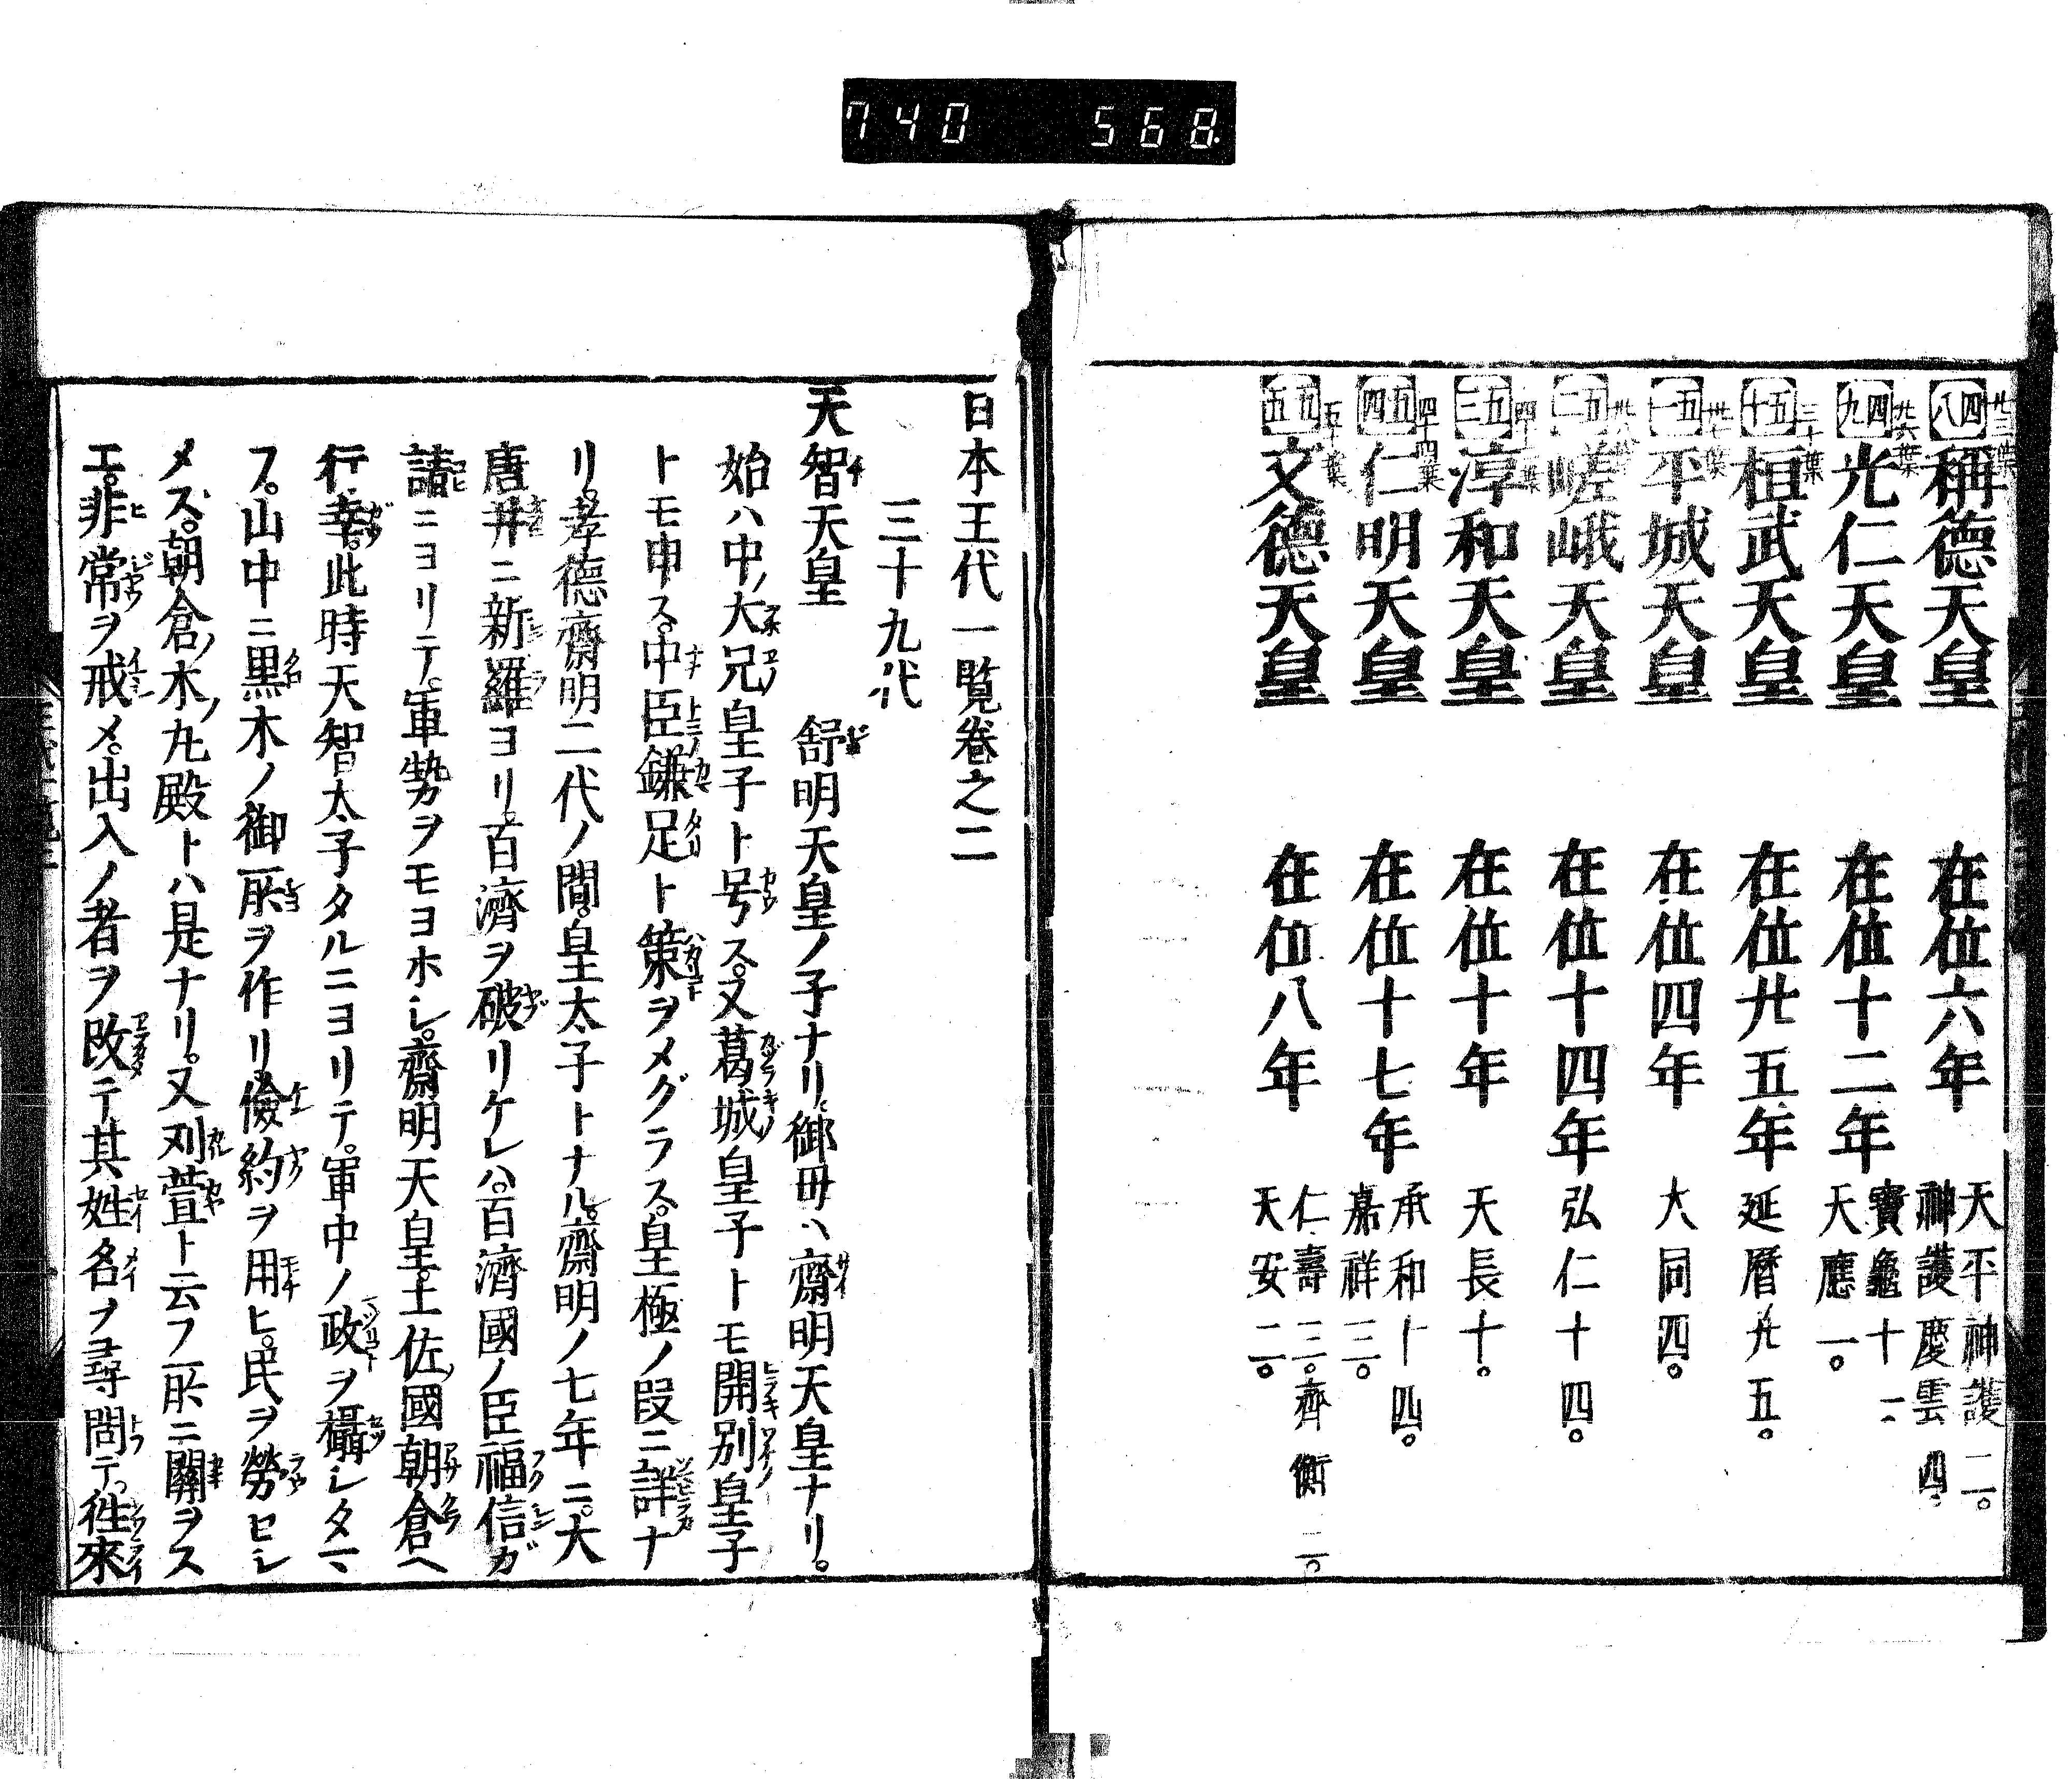 740 568
四八 稱德天皇 在位六年 天平神護二。神護慶雲四。
四九 光仁天皇 在位十二年 寶龜十一。天應一。
五十 桓武天皇 在位廿五年 延曆廿五。
五一 平城天皇 在位四年 大同四。
五二 嵯峨天皇 在位十四年 弘仁十四。
五三 淳和天皇 在位十年 天長十。
五四 仁明天皇 在位十七年 承和十四。嘉祥三。
五五 文德天皇 在位八年 仁壽三。齊衡三。天安二。
日本王代一覧卷之二
三十九代
天智天皇 舒明天皇ノ子ナリ。御母ハ齋明天皇ナリ。
始ハ中ノ大兄皇子ト号ス。又葛城皇子トモ開別皇子
トモ申ス。中臣鎌足ト策ヲメグラス。皇極ノ段ニ詳ナ
リ。孝德齋明二代ノ間。皇太子トナル。齋明ノ七年ニ。大
唐并ニ新羅ヨリ。百濟ヲ破リケレハ。百濟國ノ臣福信ガ
請ニヨリテ。軍勢ヲモヨホシ。齋明天皇。土佐ノ國朝倉ヘ
行幸。此時天智太子タルニヨリテ。軍中ノ政ヲ攝シタマ
フ。山中ニ黒木ノ御所ヲ作リ。儉約ヲ用ヒ。民ヲ勞セシ
メズ。朝倉ノ木ノ丸殿トハ是ナリ。又刈萱ト云フ所ニ關ヲス
エ。非常ヲ戒メ。出入ノ者ヲ改テ其姓名ヲヨヲ尋問テ。往來